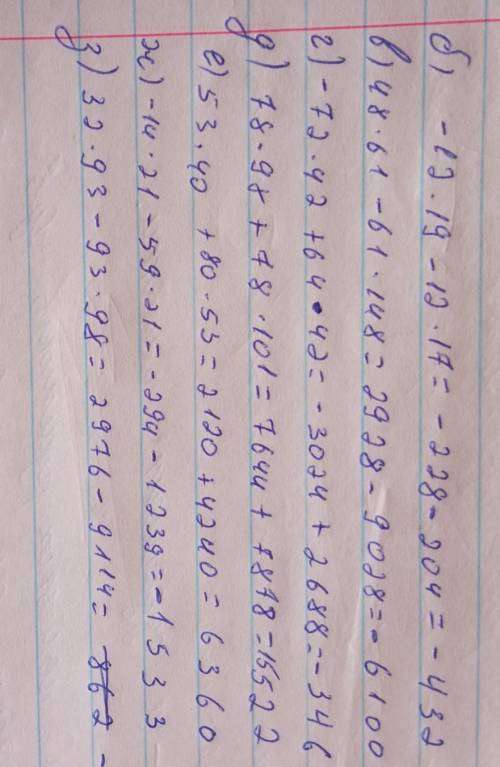 б) -12·19-12·17=-228-204=-432
в) 48·61-61·148=2928-9028=-6100
г) -72·42+64·42=-3024+2688=-346
д) 78·98+78·101=7644+7878=15522
е) 53·40+80·53=2120+4240=6360
ж) -14·21-59·21=-294-1239=-1533
з) 32·93-93·98=2976-9114= 862 -